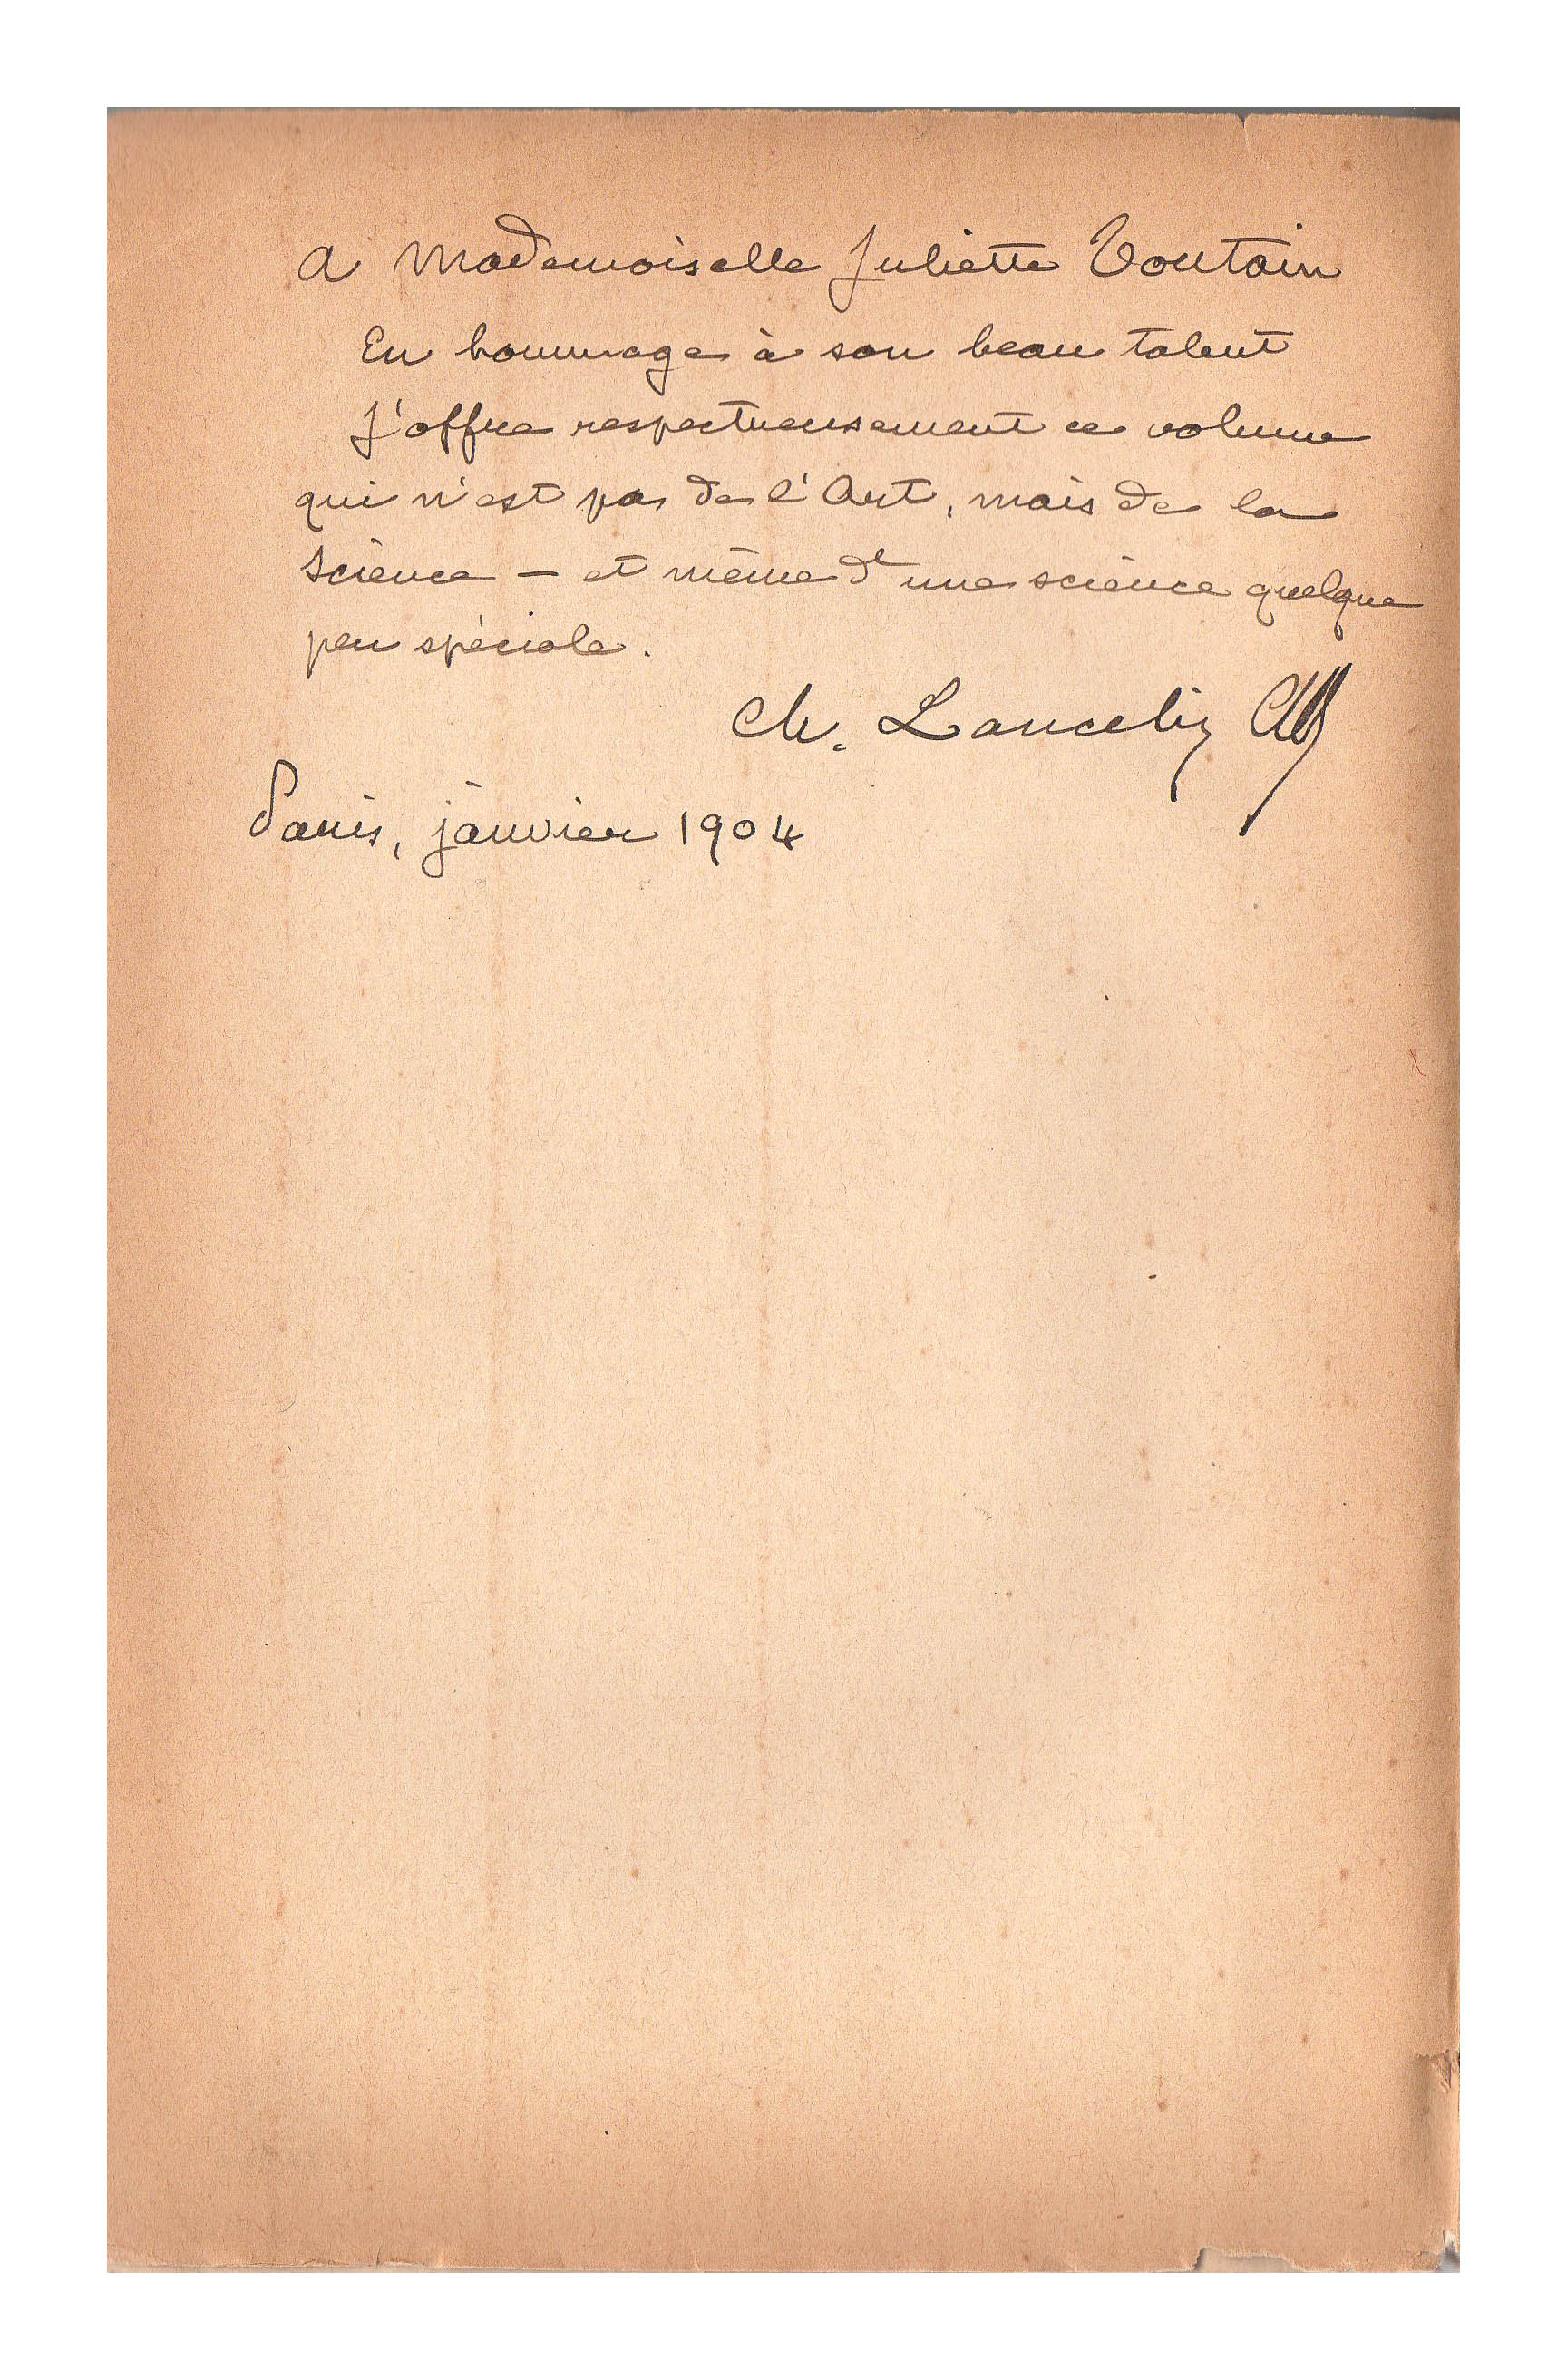 A Mademoiselle Juliette Toutain
En hommage à son beau talent
J'offre respectueusement ce volume
qui n'est pas de l'Art, mais de la
Science – et même d'une science quelque
peu spéciale.
Ch. Lancelin
Paris, janvier 1904